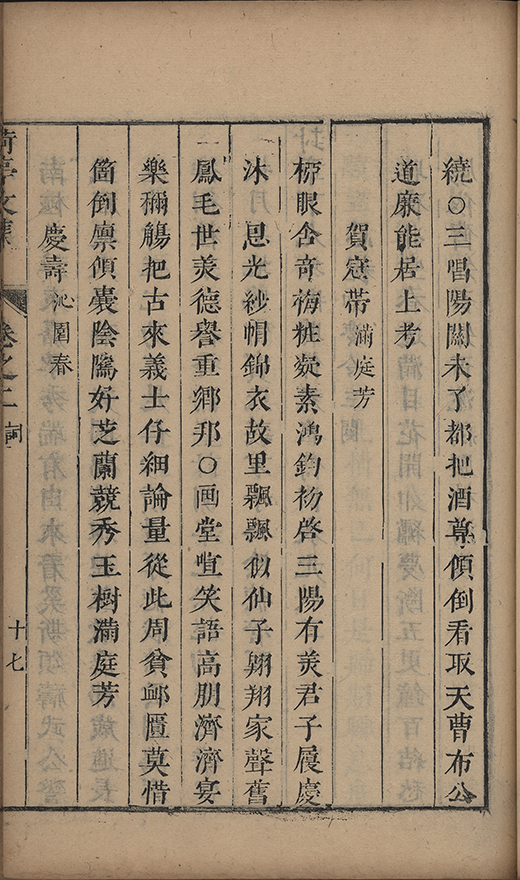 繞○三唱陽關未了都把酒尊傾倒看取天曹布公
道廉能居上考
賀冠帶 滿庭芳
柳眼含奇梅粧凝素鴻鈞初啓三陽有羙君子履慶
沐恩光紗帽錦衣故里飄飄似仙子翱翔家聲舊
鳳毛世羙德譽重鄉邦○画堂喧笑語高朋濟濟宴
樂稱觴把古來義士仔細論量從此周貧䘏匱莫惜
箇倒廪傾囊陰隲好芝蘭競秀玉樹滿庭芳
慶壽 沁園春
卷之二 詞
十七